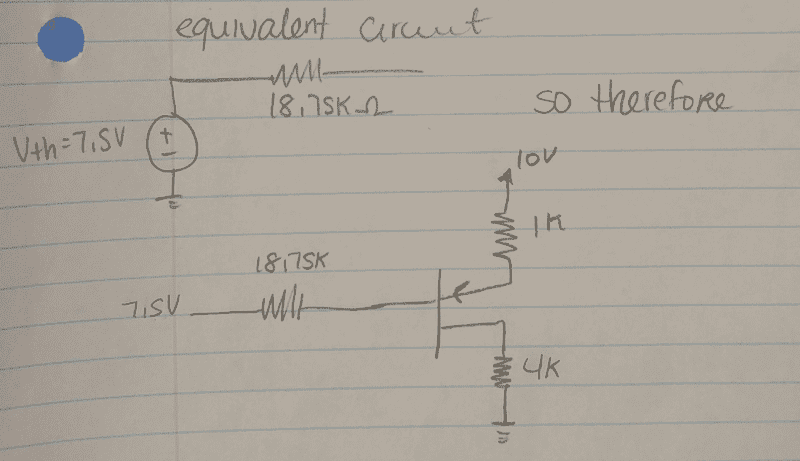 equivalent circuit
18.75K Ω
so therefore
Vth=7.5V
+
-
10V
1K
18.75K
7.5V
4K